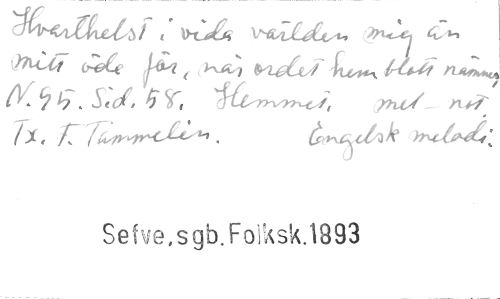 Hvarthelst i vida världen mig än
mitt öde för, när ordet hem blott nämnes
N. 95. Sid. 58. Hemmet. mel-not.
Tx. F. Tammelin. Engelsk melodi.
Sefve,sgb.Folksk.1893